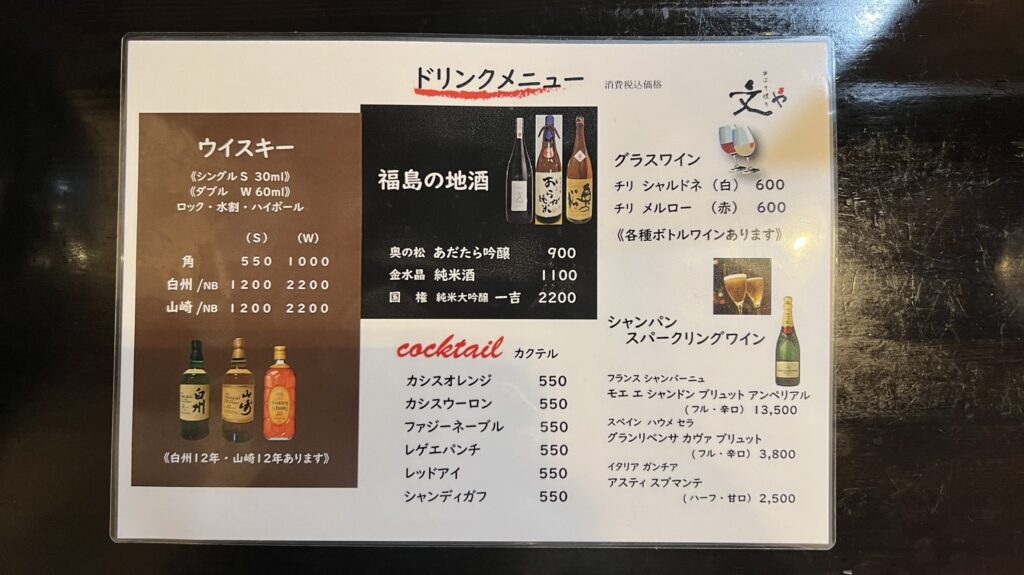 ドリンクメニュー 消費税込価格
かぶり焼き
文や
ウイスキー
《シングルS 30ml》
《ダブル W 60ml》
ロック・水割・ハイボール
(S) (W)
角 550 1000
白州/NB 1200 2200
山崎/NB 1200 2200
白州
山崎
《白州12年・山崎12年あります》
福島の地酒
おらが
純米
奥の松
奥の松 あだたら吟醸 900
金水晶 純米酒 1100
国 権 純米大吟醸 一吉 2200
cocktail カクテル
カシスオレンジ 550
カシスウーロン 550
ファジーネーブル 550
レゲエパンチ 550
レッドアイ 550
シャンディガフ 550
グラスワイン
チリ シャルドネ (白) 600
チリ メルロー (赤) 600
《各種ボトルワインあります》
シャンパン
スパークリングワイン
フランス シャンパーニュ
モエ エ シャンドン ブリュット アンペリアル
(フル・辛口) 13,500
スペイン ハウメ セラ
グランリベンサ カヴァ ブリュット
(フル・辛口) 3,800
イタリア ガンチア
アスティ スプマンテ
(ハーフ・甘口) 2,500